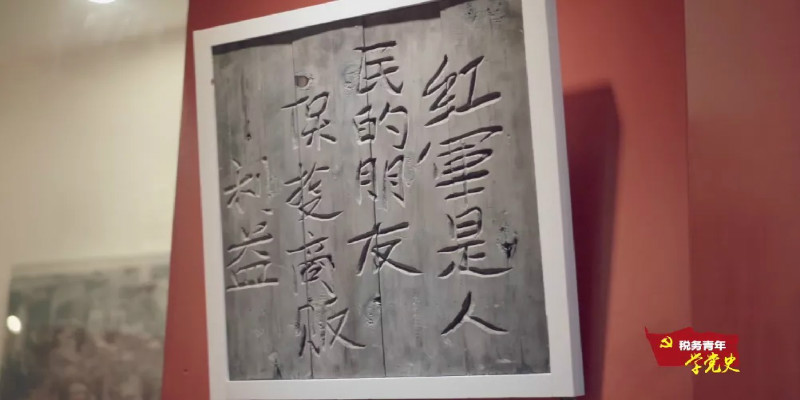 红軍是人
民的朋友
保护商贩
利益
税务青年
学党史